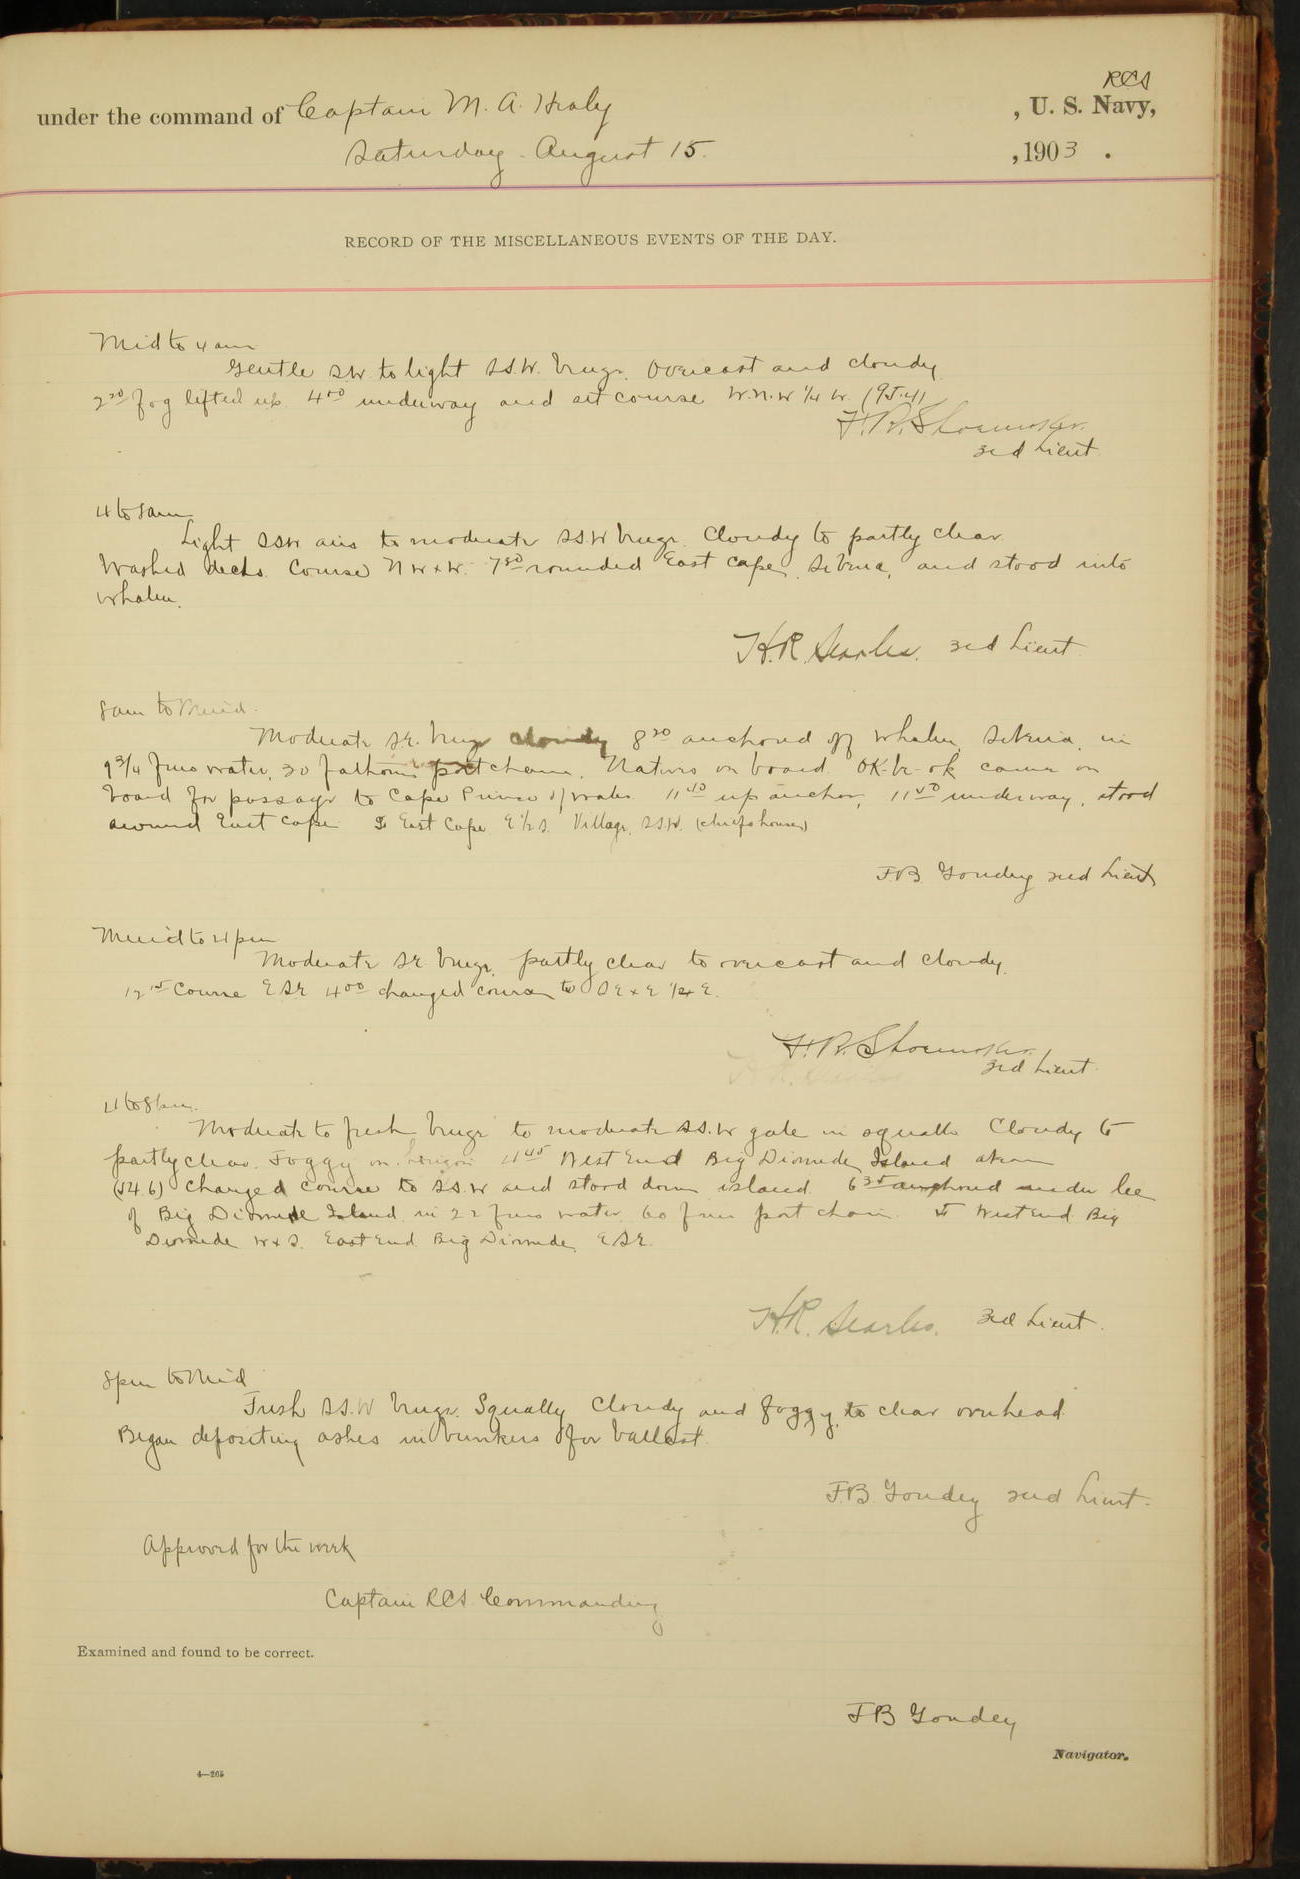 RCS
under the command of Captain M. A. Healy , U. S. Navy,
Saturday August 15. , 1903 .
RECORD OF THE MISCELLANEOUS EVENTS OF THE DAY.
Mid to 4 am
Gentle S.W. to light S.S.W. breeze. Overcast and cloudy
2 20 fog lifted up. 4 00 underway and set course W.N.W ¼ W. (95.4)
3rd Lieut.
4 to 8am
Light SSW airs to moderate SSW breeze. Cloudy to partly clear.
Washed decks. Course NWxW. 7 30 rounded East Cape, Siberia, and stood into
Whalen.
H.R. Searles. 3rd Lieut.
8am to Merid.
Moderate SE. breeze cloudy 8 20 anchored off Whalen, Siberia, in
9 3/4 fms water, 30 fathoms port chain. Natives on board. OK-be-ok came on
board for passage to Cape Prince of Wales 11 40 up anchor, 11 50 underway, stood
around East Cape East Cape E ½ S. Village, SSW. (chiefs house)
F.B. Goudey 2nd Lieut
Merid to 4pm
Moderate SE breeze, partly clear to overcast and cloudy.
12 15 Course ESE 4 00 changed course to SExE ¼ E.
3rd Lieut.
4 to 8pm.
Moderate to fresh breeze to moderate SS.W gale in squalls Cloudy to
partly clear. Foggy on horizon 4 45 West End Big Diomede Island abeam
(54.6) changed course to SS.W and stood down island. 6 35 anchored under lee
of Big Diomede Island in 22 fms water 60 fms port chain. West End Big
Diomede WxS. East End Big Diomede, ESE.
H.R. Searles. 3rd Lieut.
8pm to Mid
Fresh SS.W breeze. Squally Cloudy and foggy, to clear overhead.
Began depositing ashes in bunkers for ballast.
F.B. Goudey 2nd Lieut.
Approved for the week
Captain RCS Commanding
Examined and found to be correct.
F B Goudey
Navigator.
4—265